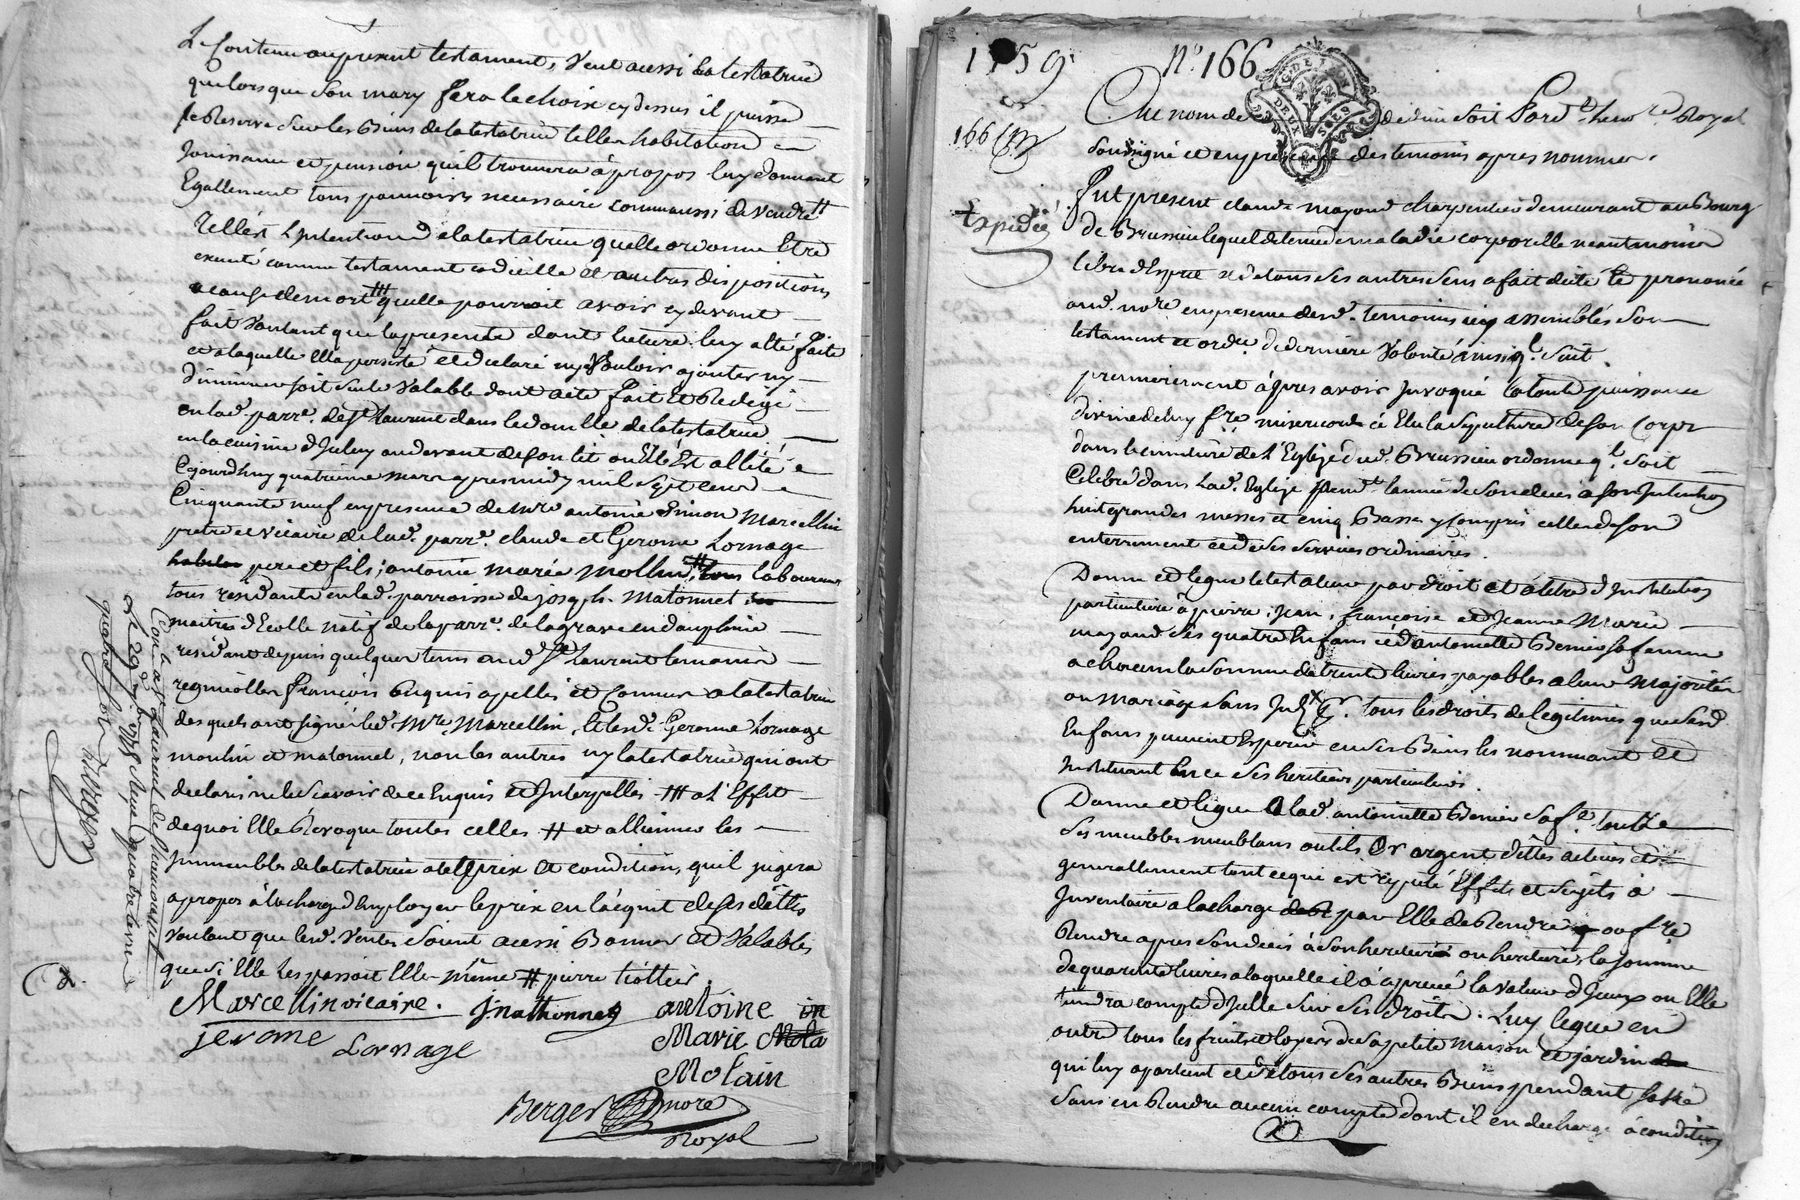 Le Contenu au present testament, veut aussi la testatrice
que lorsque son mary fera le choix cy dessus il puisse
se Reserve sur les Biens de la testatrice telle habitation
Jouissance et pension qu'il trouvera à propos luy donnant
Egallement tous pouvoirs necessaire comm'aussi de vendre #
Telle st L'intention de la testatrice quelle ordonne Etre
executé comme testament codicille et autres dispositions
a cause de mort ### quelle pourroit avoir cy devant
fait voulant que la presente dont lecture luy a été faite
et a laquelle Ella persisté et declaré ny vouloir ajouter ny
diminuer soit seule valable dont acte fait et Redigé
en lad. parre. de St laurent dans le domicille de la testatrice
en la cuisine d'Iceluy au devant de son lit ou Elle Est allitée
Cejourd'huy quatrieme mars apres midy mil sept cend
Cinquante neuf en presence de Mre antoine Simon Marcellin
pretre et vicaire de lad. parre. claude et Gerome Lornage
habitan pere et fils; antoine marie Mollin # tous laboureurs
tous residants en lad. parroisse de joseph Matonnet
maitre d'Ecolle natif de la parre. de la grave en dauphiné
residant depuis quelque tems aud. St laurent temoins
requis ollier françois Enquis apellés et Connus a la testatrice
desquels ont signé led. Mre. Marcellin, Et lesd. Gerome Lornage
moulin et matonnet, non les autres ny la testatrice qui ont
declaré ne le scavoir de ce Enquis et Interpellés ### a L'Effet
de quoi Elle Revoque toutes celles # et alliener les
Immeubles de la testatrice a tel prix et condition, quil jugera
apropos à la charge d'Employer le prix en l'acquit de ses dettes
voulant que lesd. ventes soient aussi Bonnes et valables
que si Elle Les passoit Elle-même # pierre tiollier
Marcellin vicaire. J: mathonnet antoine
jerome Lornage Marie Mola
Molain
Berger nore
Royal
Conlé a St Laurent de Chamousset
Le 29 mars 1759 Reçu quatre livres
quatre sols
1759 No. 166
166
Expedié
G. DE LYON
DEUX SOLS
Au nom de dieu soit Pard. t. le nore Royal
soussigné et en presence des temoins apres nommés.
Fut present claude mayoud charpentier demeurant au Bourg
de Brussieu lequel detenu de maladie corporelle neantmoins
libre d'Esprit et de tous ses autres sens a fait dicté et prononcé
aud. nore. en presence desd. temoins icy assemblés son
testament et ordce. de derniere volonté ainsi ql. suit.
premierement apres avoir Invoqué la toute puissance
divine de luy fre. misericorde a Elu la sepulture de son Corps
dans le cimetiere de L'Eglise dud. Brussieu ordonne ql. soit
Celebré dans Lad. Eglise pendt. lannée de son deces a son Intention
huit grandes messes et cinq Basses y compris celles de son
enterrement et de ses services ordinaires.
Donne et legue le testateur par droit et a titre d'Institution
particuliere à pierre, jean, françoise et jeanne Marie
mayoud ses quatre Enfans et d'antoinette Bernier sa femme
a chacun la somme de trente livres payables a leur Majorité
ou mariage sans Int. x pr. tous les droits de legitimes que sesd.
Enfans peuvent Esperer en ses Biens les nommant et
Instituant En ce ses heritiers particuliers.
Donne et legue a lad. antoinette Bernier sa fe. toutte
ses meubles meublans outils or argent dettes actives et
generallement tout ce qui est reputé Effets et Sujets à
Inventaire a la charge de R par Elle de Rendre ou fre
Rendre apres son deces à son heritier ou heritiere la somme
de quarente livres a laquelle il a aprecié la valeur d'Iceux ou Elle
tiendra compte d'Icelle sur ses droits. Luy legue en
outre tous les fruits et loyers de sa petite maison et jardin
qui luy apartient et de tous ses autres Biens pendant sa vie
sans en Rendre aucun compte dont il en decharge à condition